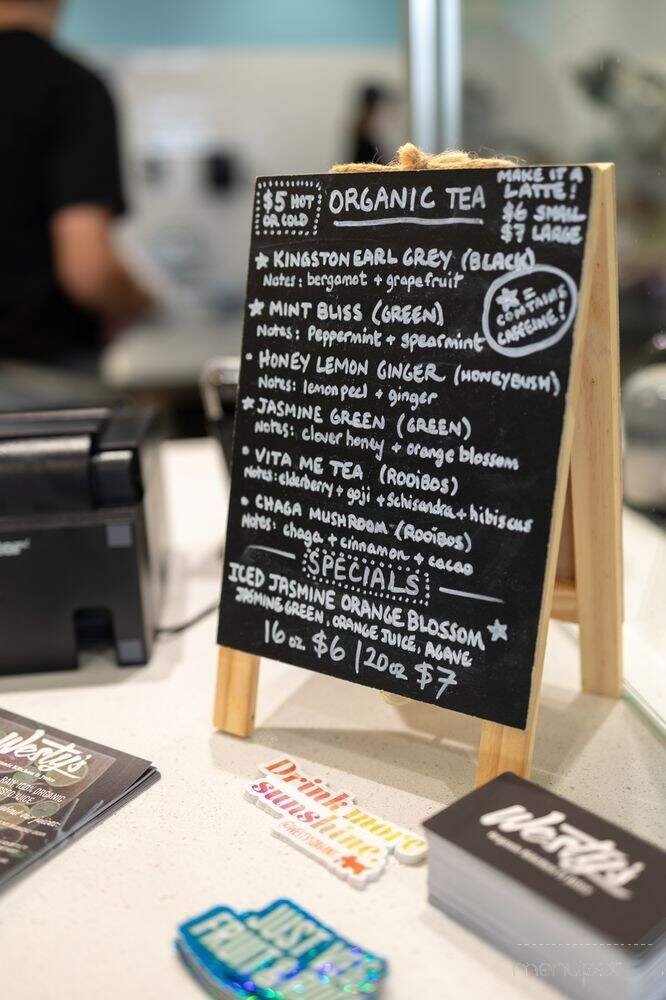 $5 HOT
OR COLD
ORGANIC TEA
MAKE IT A
LATTE!
$6 SMALL
$7 LARGE
★ KINGSTON EARL GREY (BLACK)
Notes: bergamot + grapefruit
★ =
CONTAINS
CAFFEINE!
★ MINT BLISS (GREEN)
Notes: Peppermint + spearmint
• HONEY LEMON GINGER (HONEYBUSH)
Notes: lemon peel + ginger
★ JASMINE GREEN (GREEN)
Notes: clover honey + orange blossom
• VITA ME TEA (ROOIBOS)
Notes: elderberry + goji + Schisandra + hibiscus
• CHAGA MUSHROOM (ROOIBOS)
Notes: chaga + cinnamon + cacao
SPECIALS
ICED JASMINE ORANGE BLOSSOM ★
JASMINE GREEN, ORANGE JUICE, AGAVE
16 oz $6 | 20oz $7
Westy's
Drink more
sunshine
Westy's
JUST
FRUIT
menupix